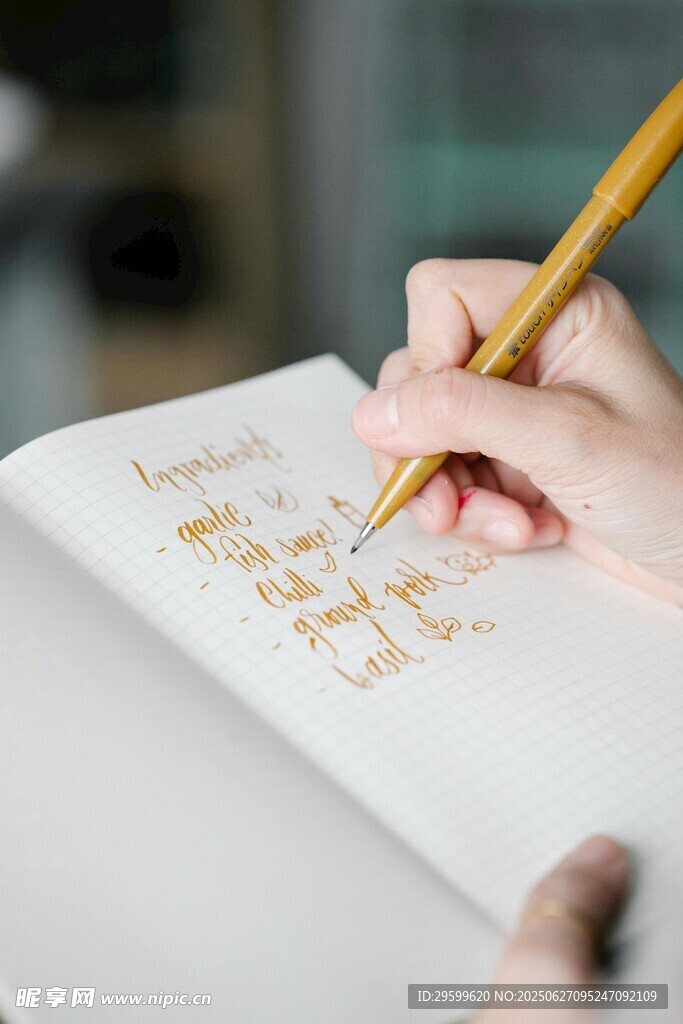 Ingredients
- garlic
- fish sauce!
- Chilli
- ground pork
- basil
touch
昵享网 www.nipic.cn
ID:29599620 NO:20250627095247092109